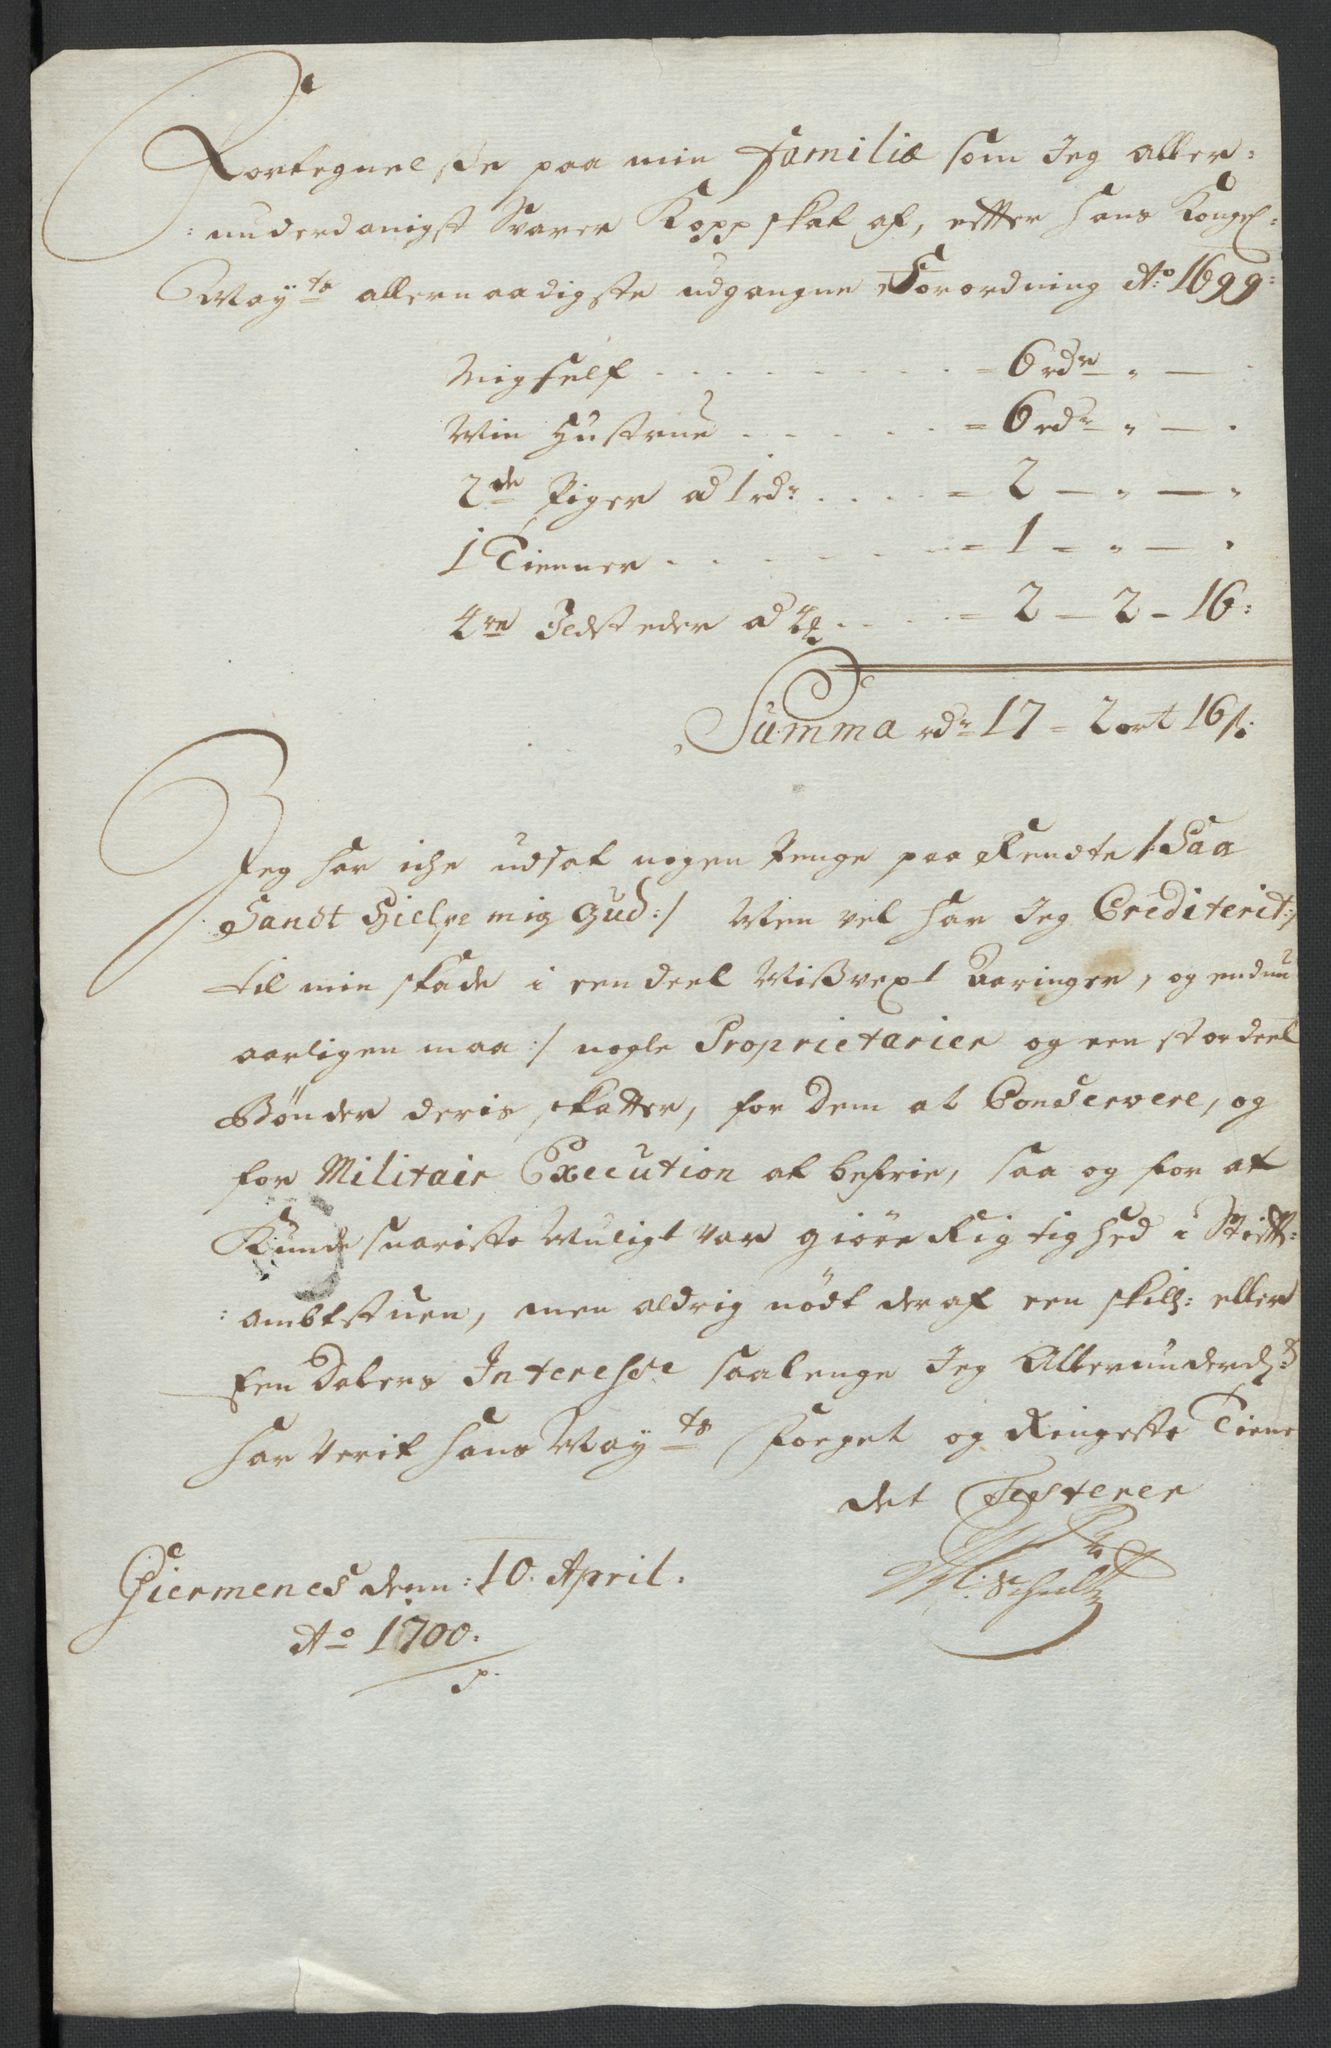 Fortegnelse paa min Familiæ som Jeg aller=
:underdanigst Svarer Koppskat af, efter Hans Kongel:
Mayts allernaadigste udgangne Forordning Ao: 1699:
Migself . . . . . . . . = 6 rdr " — .
Min Hustrue . . . . . = 6 rdr " — .
2de Piger ad 1 rdr . . . . = 2 — " — "
1 Tienner . . . . . . = 1 = " — "
4re Ildsteder ad . . . . = 2 — 2 - 16:
Summa rdr 17 = 2 ort 16 s:
Jeg har iche udsat nogen Penge paa Rendte /: Saa
Sandt Hielpe mig Gud :/ Men vel har Jeg Crediterit :/
til min skade i een deel Misvext Aaringer, og endnu
aarligen maa :/ nogle Proprietarier og een stordeel
Bønder deris skatter, for dem at Conservere, og
for Militair Execution at befrie, saa og for at
Kunde snariste Muligt var giøre Rigtighed i Stifft=
:ambtstuen, men aldrig nødt deraf een skill: eller
Een Dalers Interesse saalenge Jeg Allerunderd:
har verit Hans Mayts Foeget og Ringeste Tiener
det Testerer
M: Schultz
Giermenes denn: 10. April.
Ao 1700: